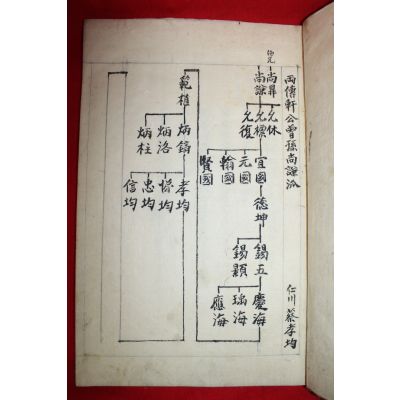 兩傳軒公曾孫尚謙派
仁川 蔡孝均
尚昇
尚謙
允休
允標
允復
宜國
元國
翰國
賢國
德坤
錫五
錫顯
慶海
瑞海
應海
範植
炳鎬
炳洛
炳柱
孝均
悟均
忠均
信均